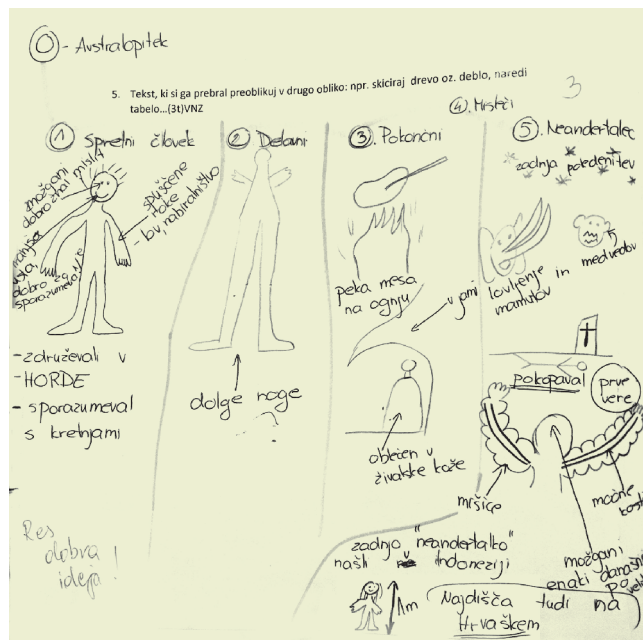 0 - Avstralopitek
5. Tekst, ki si ga prebral preoblikuj v drugo obliko: npr. skiciraj drevo oz. deblo, naredi
tabelo...(3t)VNZ
3
1 Spretni človek
možgani
dobro znal misliti
manjša
usta
dobro za
sporazumevanje
spuščene
roke
- lov, nabiralništvo
- združevali v
HORDE
- sporazumeval
s kretnjami
2 Delavni
dolge noge
?
3. Pokončni
peka mesa
na ognju
oblečen v
živalske kože
4 Misleči
5. Neandertalec
zadnja poledenitev
v jami lovljenje in medvedov
mamutov
pokopaval
prve
vere
mišice
močne
kosti
možgani
enaki današnji
po
zadnjo "neandertalko"
našli v Indoneziji
1m
Najdišča tudi na
Hrvaškem
Res
dobra
ideja!